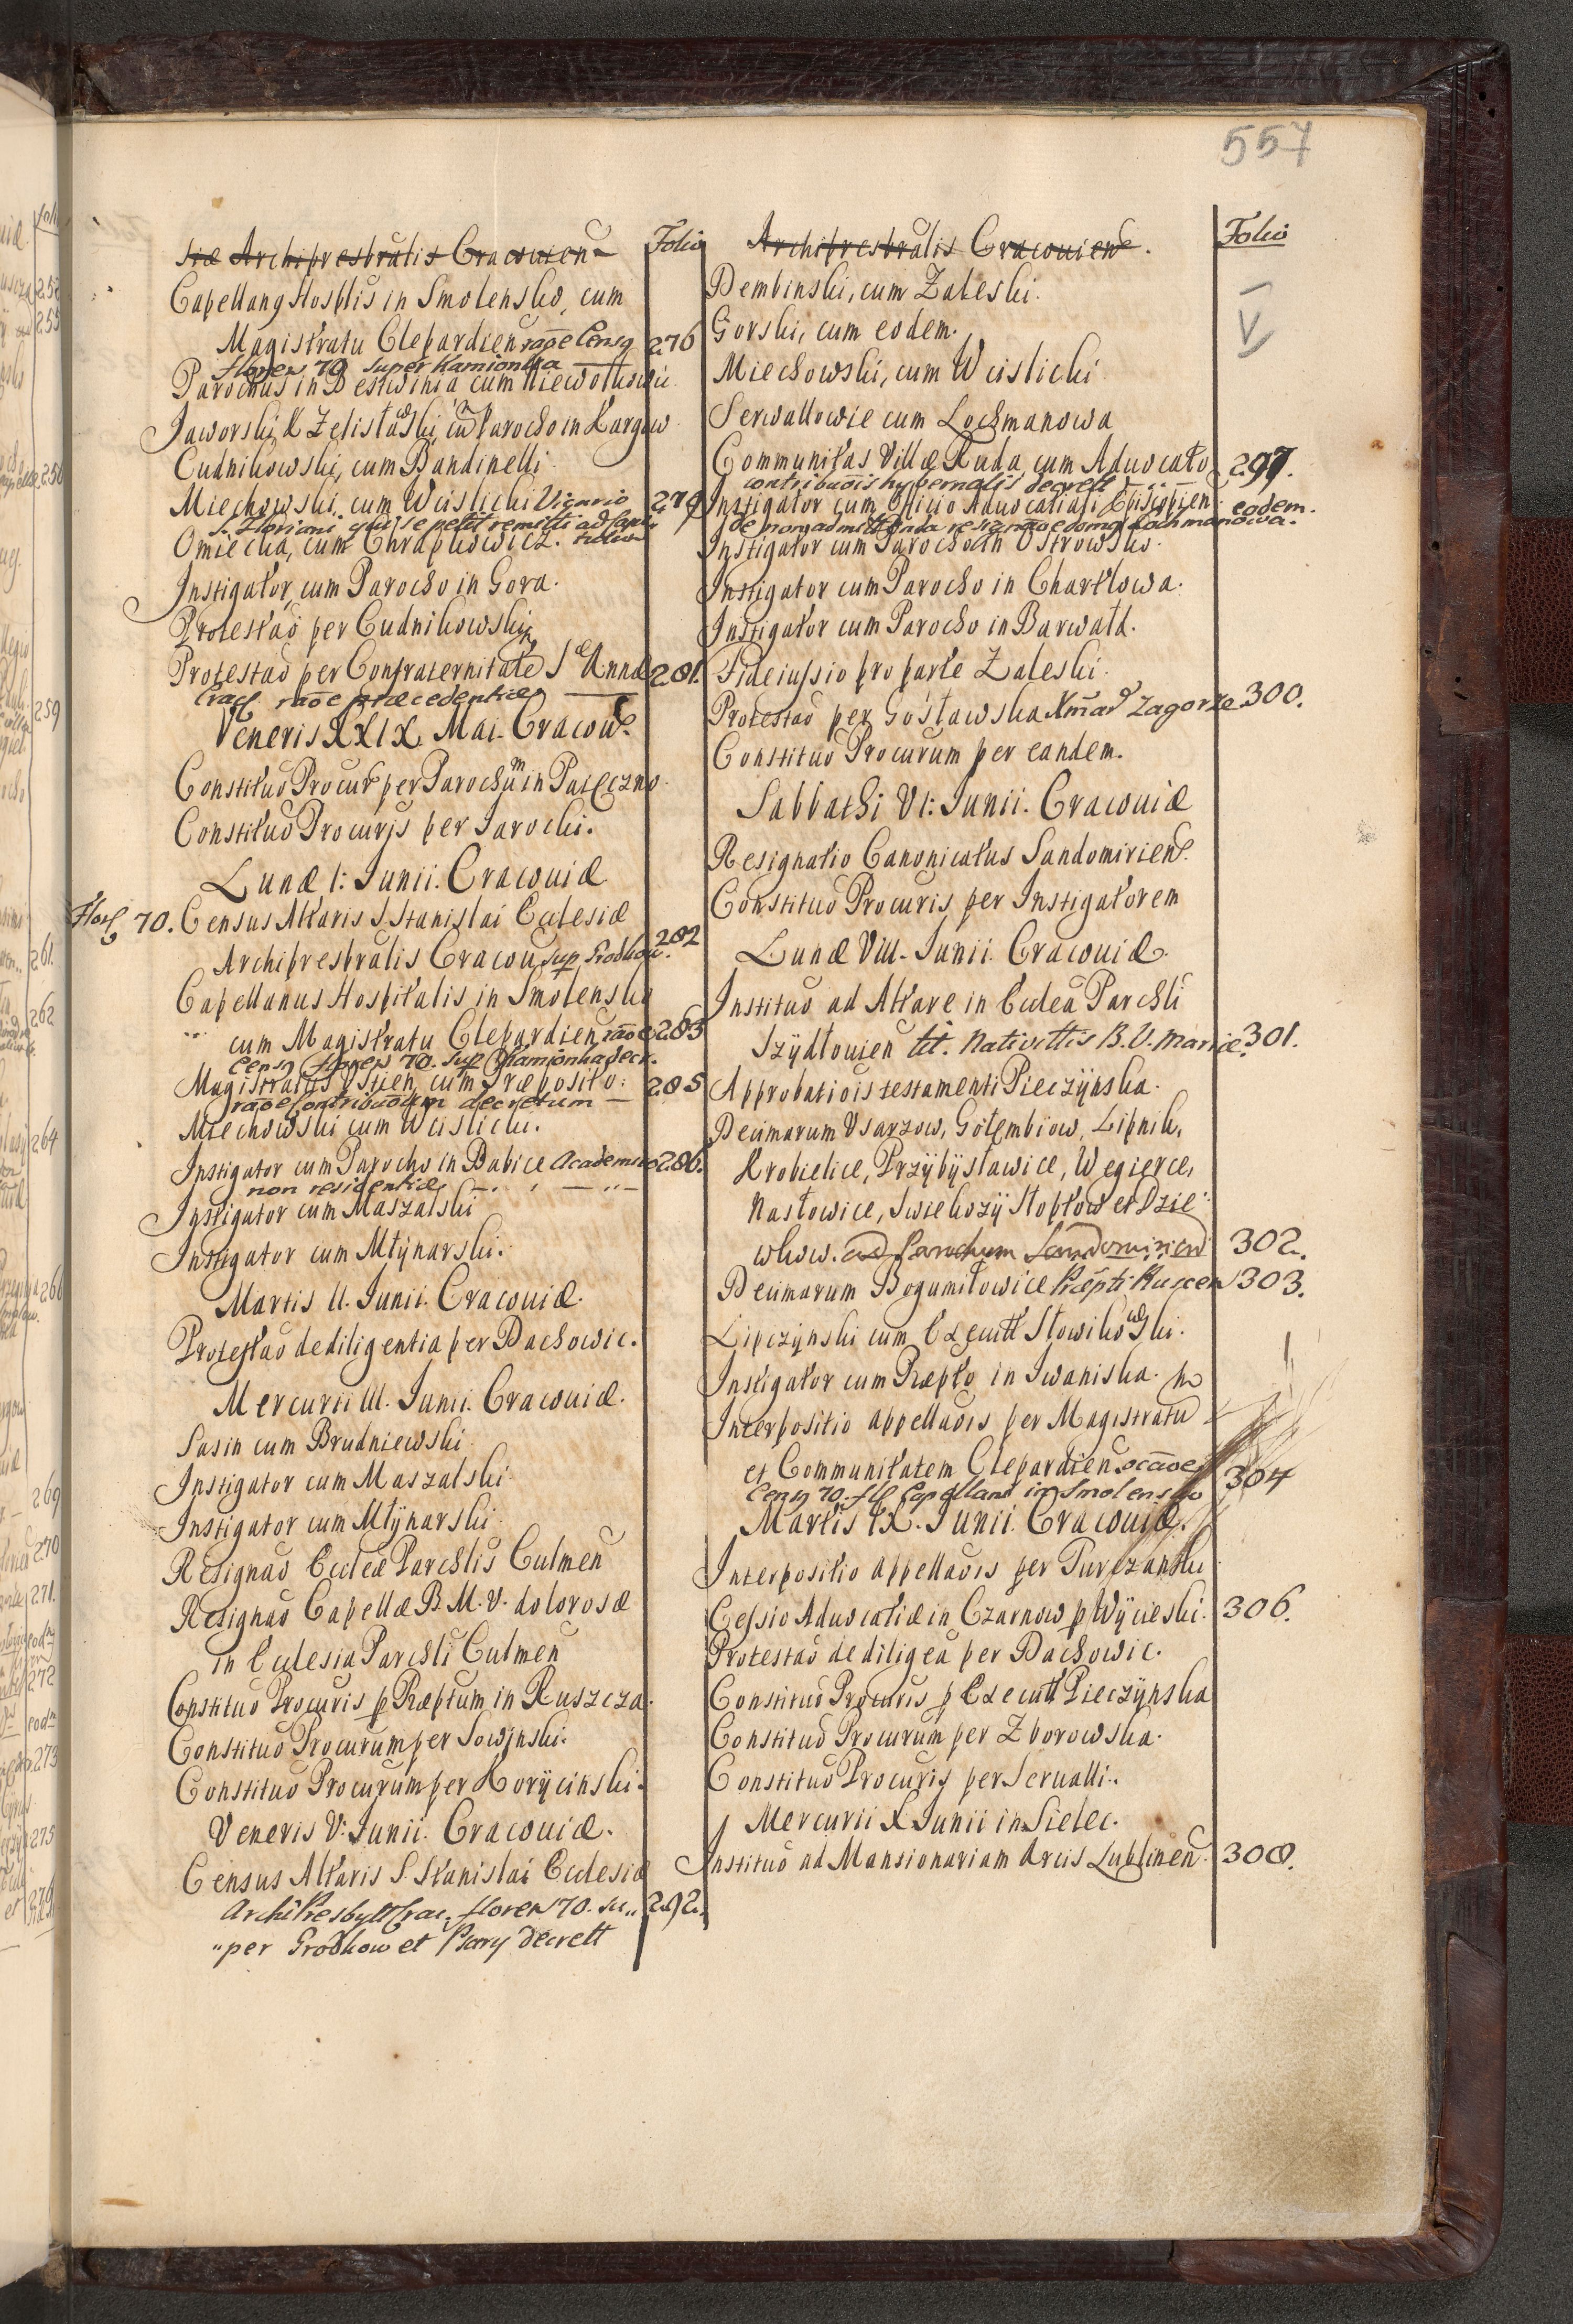 557
Folio
siæ Archipresbralis Cracouien
Capellang Hosplis in Smolensko, cum
Magistratu Clepardien raōe Censg 276
floren 70 super Kamionka
Parochus in Bestwinia cum Niewolkowic
Jaworski, X Zelislawski, cū Parocho in Kargow
Cudnikowski, cum Bandinelli
Miechowski, cum Wcislicki Vicario 279
S. Floriani qui se petit remitti ad Capitulum
Omiecka, cum Chraplkowicz.
Instigator, cum Parocho in Gora.
Protestao per Cudnikowski
Protestao per Confraternitate S Annæ 281.
Crac raōe præcedentiæ
Veneris XXIX Mai. Cracow.
Constituo Procur per Parochum in Paięczno.
Constituo Procuris per Jarocki.
Lunæ I: Junii. Cracouiæ
Flor 70. Census Altaris S Stanislai Ecclesiæ
Archipresbralis Cracou sup Grodkow. 282
Capellanus Hospitalis in Smolensko
cum Magistratu Clepardien raōe 283
Censg floren 70. sup Kamionka decr.
Magistratus Ustien, cum Præposito: 285
raōe Contribuōum decretum
Miechowski cum Wcislicki.
Instigator cum Parocho in Babice Academico 286.
non residentiæ
Instigator cum Maszalski
Instigator cum Mlÿnarski.
Martis II. Junii. Cracouiæ.
Protestao de diligentia per Dachowic.
Mercurii III. Junii. Cracouiæ.
Sasin cum Brudniewski
Instigator cum Maszalski
Instigator cum Mlÿnarski
Resignao Eccleæ Parchlis Culmen
Resignao Capellæ B. M. V. dolorosæ
in Ecclesia Parchli Culmen
Constituo Procuris p Præptum in Ruszcza.
Constituo Procurum per Sowinski.
Constituo Procurum per Korÿcinski.
Veneris V: Junii. Cracouiæ.
Census Altaris S. Stanislai Ecclesiæ
ArchiPresbytt Crac. floren 70. su„ 292.
„per Grodkow et Psary decrett
Folio
Archipresbralis Cracouien.
Dembinski, cum Zaleski.
Gorski, cum eodem.
Miechowski, cum Wcislicki
Serwallowie cum Lochmanowa
Communitas Villæ Ruda, cum Aduocato 297.
contribuōis hybernalis decrett
Instigator cum Officio Aduocatiali Episcpien eodem.
de non admittenda resignaōe domg Lochmanowa.
Instigator cum Parocho in Ostrowsko.
Instigator cum Parocho in Charklowa.
Instigator cum Parocho in Barwald.
Fideiussio pro parte Zaleski.
Protestao per Gostawska Zagorze 300.
Constituo Procurum per eandem.
Sabbathi VI: Junii. Cracouiæ
Resignatio Canonicatus Sandomirien.
Constituo Procuris per Instigatorem
Lunæ VIII. Junii. Cracouiæ.
Instituo ad Altare in Ecclea Parchli
Szÿdlouien tit. Nativittis B. V. Mariæ. 301.
Approbatiois testamenti Pieczÿnska.
Decimarum Vsarzow, Golembiow, Lipnik,
Krobielice, Przÿbÿslawice, Wegierce,
Naslowice, Swiekozÿ Stoplow et Dzie:
wkow. ad Parochum Sandomirien 302.
Decimarum Bogumilowice Præpti Ruscen 303.
Lipczÿnski cum Executt Slowikowski.
Instigator cum Præpto in Iwaniska.
Interpositio appellaois per Magistratu
et Communitatem Clepardien occaōe 304
Censg 70. fll Capellani in Smolensko
Martis IX. Junii. Cracouiæ.
Interpositio appellaois per Turczanski
Cessio Aduocatiæ in Czarnow p Wÿcieski. 306.
Protestao de diligea per Dachowic.
Constituo Procuris p Executt Pieczÿnska
Constituo Procurum per Zborowska.
Constituo Procuris per Serualli.
Mercurii X Junii in Sielec.
Instituo ad Mansionariam Arcis Lublinen. 308.